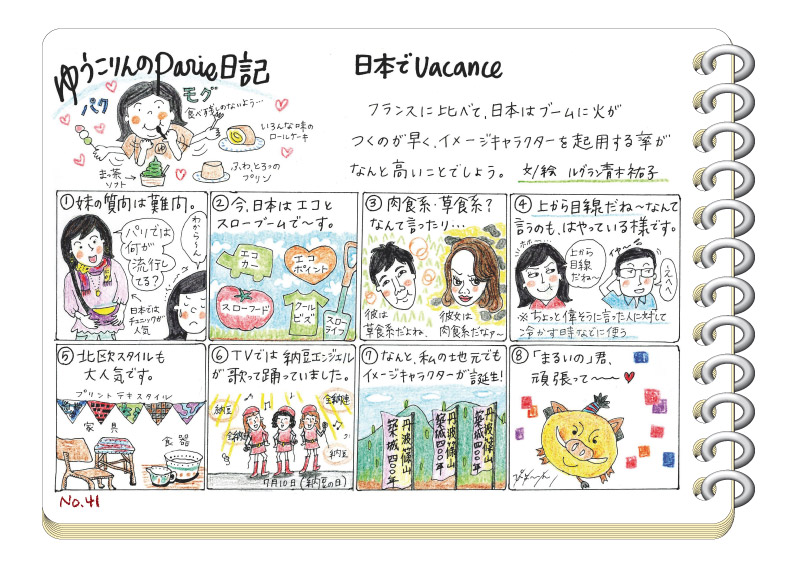 ゆうこりんのParie日記
パク
モグ
食べすぎしのないよう…
いろんな味の
ロールケーキ
ふわ、とろっの
プリン
まっ茶
ソフト
日本でVacance
フランスに比べて、日本はブームに火が
つくのが早く、イメージキャラクターを起用する率が
なんと高いことでしょう。 文/絵 ルグラン青木祐子
①妹の質向は難向。
わからん!
パリでは
何が
流行し
てる?
日本では
チュニックが
人気
②今、日本はエコと
スローブームで〜す。
エコ
カー
エコ
ポイント
スローフード
クール
ビズ
スロー
ライフ
③肉食系・草食系?
なんて言ったり…
彼は
草食系だよね
彼女は
肉食系だなァ〜
④上から目線だね〜なんて
言うのも、はやっている様です。
ホホ…
上から
目線
だね〜
イヤ〜
へへへ
※ちょっと偉そうに言った人に対して
冷かす時などに使う
⑤北欧スタイルも
大人気です。
プリントテキスタイル
家具
食器
⑥TVでは納豆エンジェル
が歌って踊っていました。
納豆
金納連
金納連
納豆
7月10日(納豆の日)
⑦なんと、私の地元でも
イメージキャラクターが誕生!
丹波篠山
築城四〇〇年
丹波篠山
築城四〇〇年
丹波篠山
築城四〇〇年
⑧「まるいの」君、
頑張って〜〜♥
ぴょーん
No.41